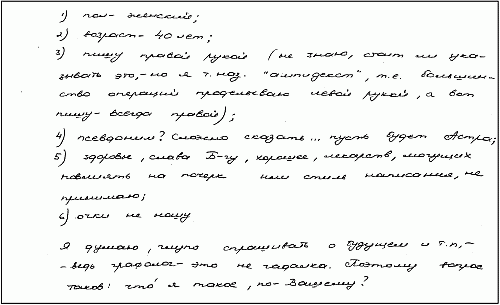 1) пол- женский;
2) возраст- 40 лет;
3) пишу правой рукой (не знаю, стоит ли ука-
зывать это,- но я т. наз. "амтидекст", т.е. большин-
ство операций проделываю левой рукой, а вот
пишу- всегда правой);
4) псевдоним? Сложно сказать... пусть будет Астра;
5) здоровье, слава Б-гу, хорошее, лекарств, могущих
повлиять на почерк или стиль написания, не
принимаю;
6) очки не ношу
Я думаю, глупо спрашивать о будущем и т.п,-
-ведь графолог- это не гадалка. Поэтому вопрос
таков: что́ я такое, по- Вашему?